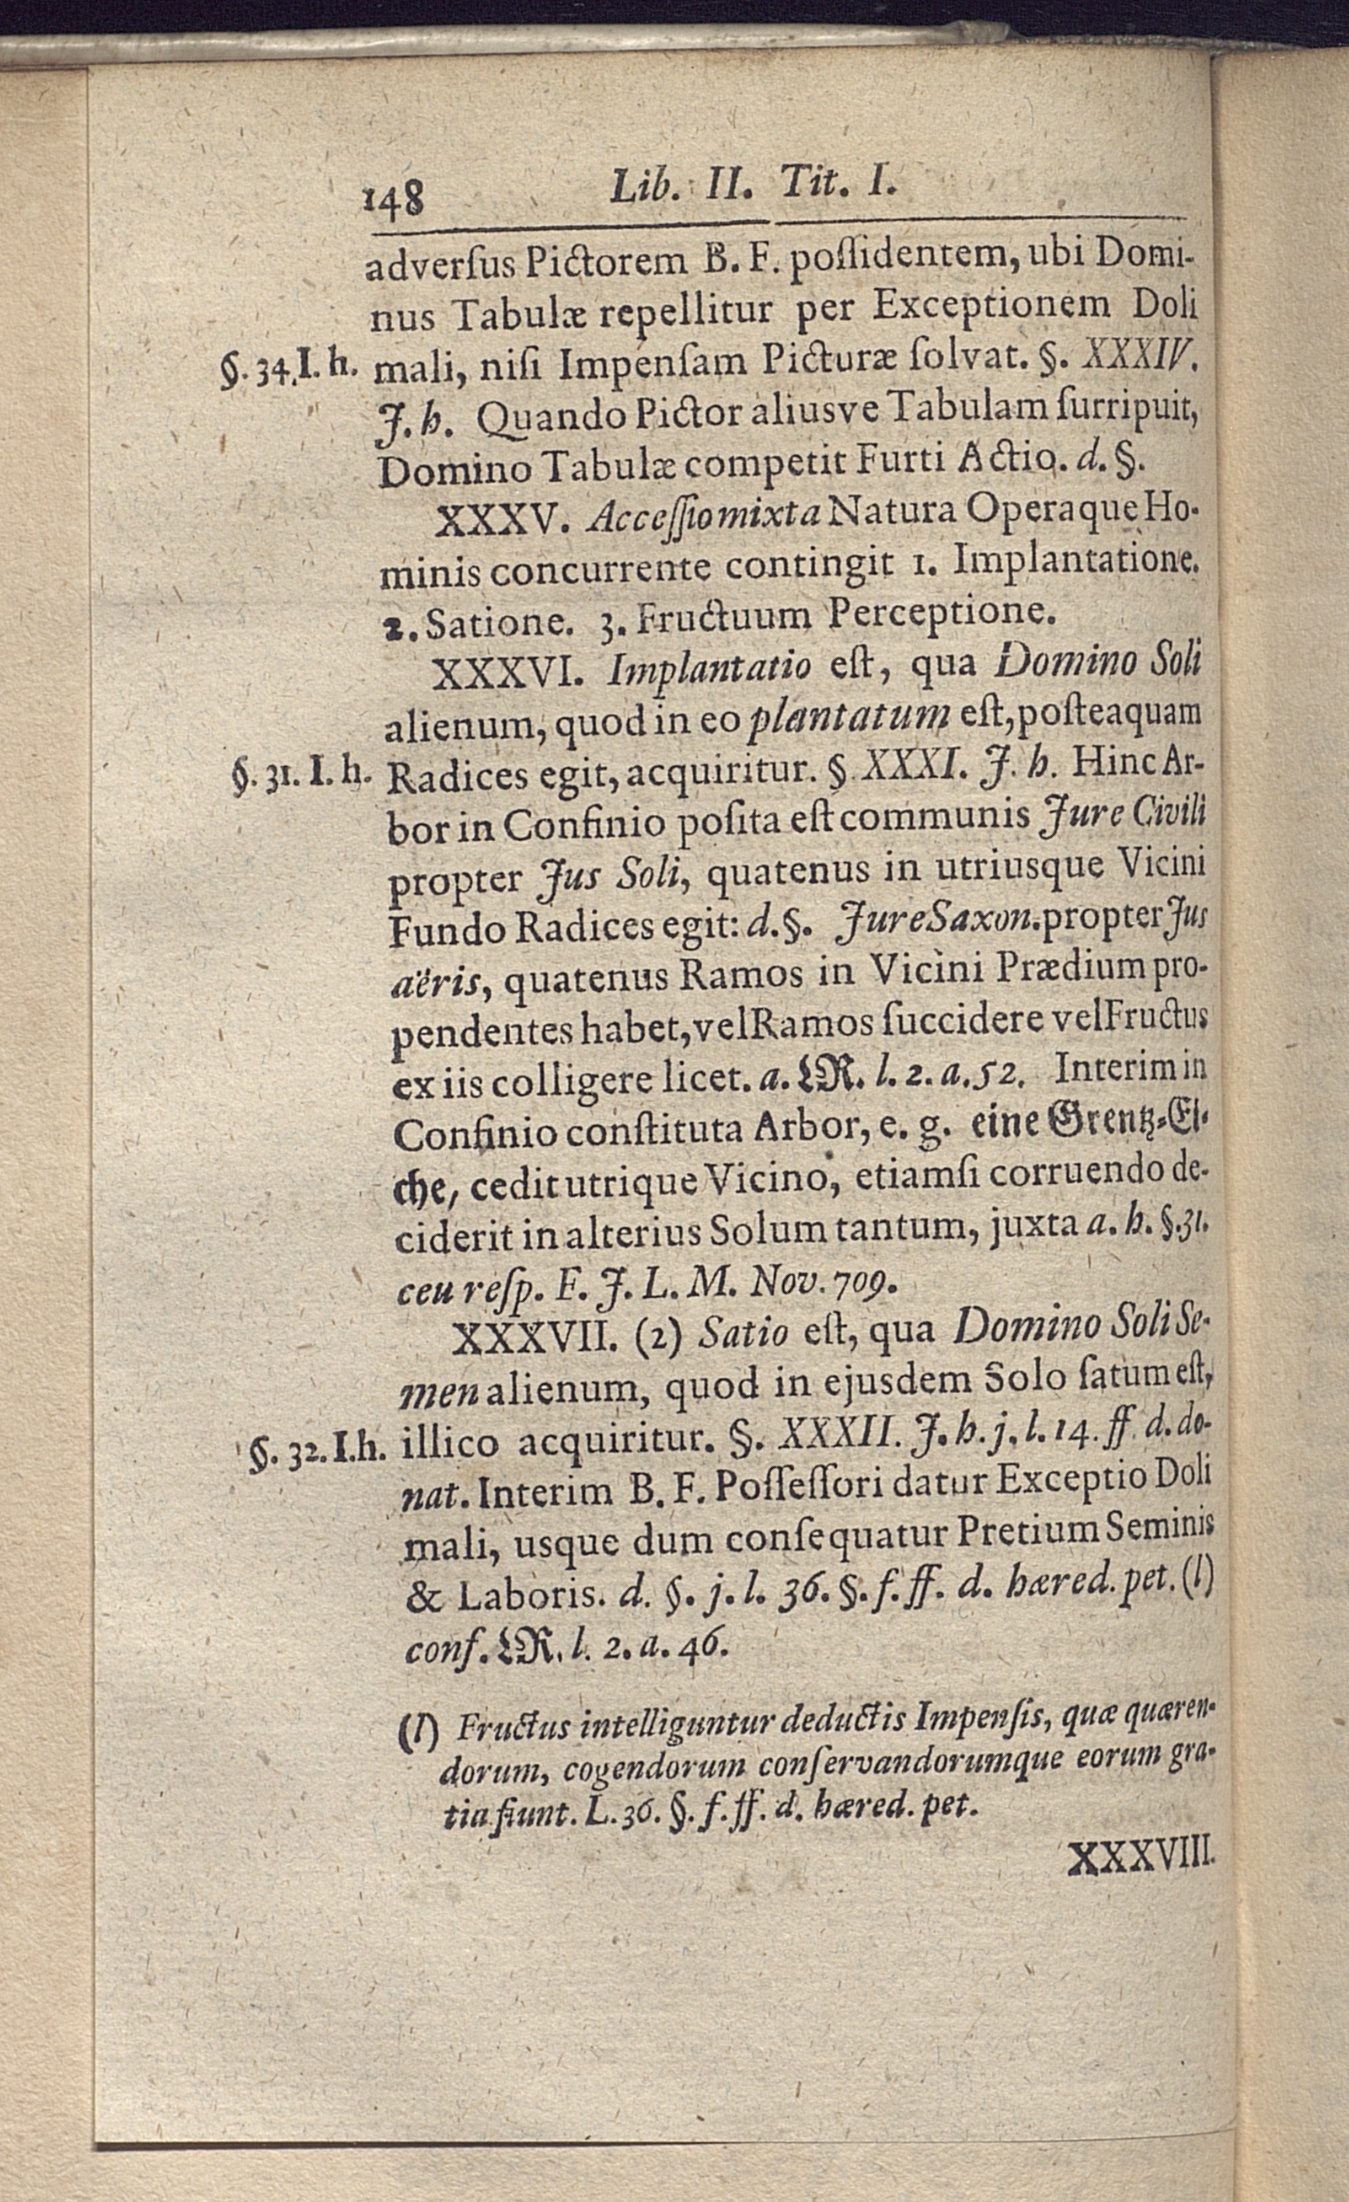 148 Lib. II. Tit. I.
adverſus Pictorem B. F. poſſidentem, ubi Domi-
nus Tabulæ repellitur per Exceptionem Doli
§. 34. I. h. mali, niſi Impenſam Picturæ ſolvat. §. XXXIV.
J. h. Quando Pictor aliusve Tabulam ſurripuit,
Domino Tabulæ competit Furti Actio. d. §.
XXXV. Acceſſio mixta Natura Operaque Ho-
minis concurrente contingit 1. Implantatione.
2. Satione. 3. Fructuum Perceptione.
XXXVI. Implantatio eſt, qua Domino Soli
alienum, quod in eo plantatum eſt, poſteaquam
§. 31. I. h. Radices egit, acquiritur. § XXXI. J. h. Hinc Ar-
bor in Confinio poſita eſt communis Jure Civili
propter Jus Soli, quatenus in utriusque Vicini
Fundo Radices egit: d. §. Jure Saxon. propter Jus
aëris, quatenus Ramos in Vicini Prædium pro-
pendentes habet, vel Ramos ſuccidere vel Fructus
ex iis colligere licet. a. LR. l. 2. a. 52. Interim in
Confinio conſtituta Arbor, e. g. eine Grentz-Ei-
che, cedit utrique Vicino, etiamſi corruendo de-
ciderit in alterius Solum tantum, juxta a. h. §. 31.
ceu reſp. F. J. L. M. Nov. 709.
XXXVII. (2) Satio eſt, qua Domino Soli Se-
men alienum, quod in ejusdem Solo ſatum eſt,
§. 32. I. h. illico acquiritur. §. XXXII. J. h. j. l. 14. ff. d. do-
nat. Interim B. F. Poſſeſſori datur Exceptio Doli
mali, usque dum conſequatur Pretium Seminis
& Laboris. d. §. j. l. 36. §. f. ff. d. hæred. pet. (l)
conf. LR. l. 2. a. 46.
(l) Fructus intelliguntur deductis Impenſis, quæ quæren-
dorum, cogendorum conſervandorumque eorum gra-
tia fiunt. L. 36. §. f. ff. d. hæred. pet.
XXXVIII.